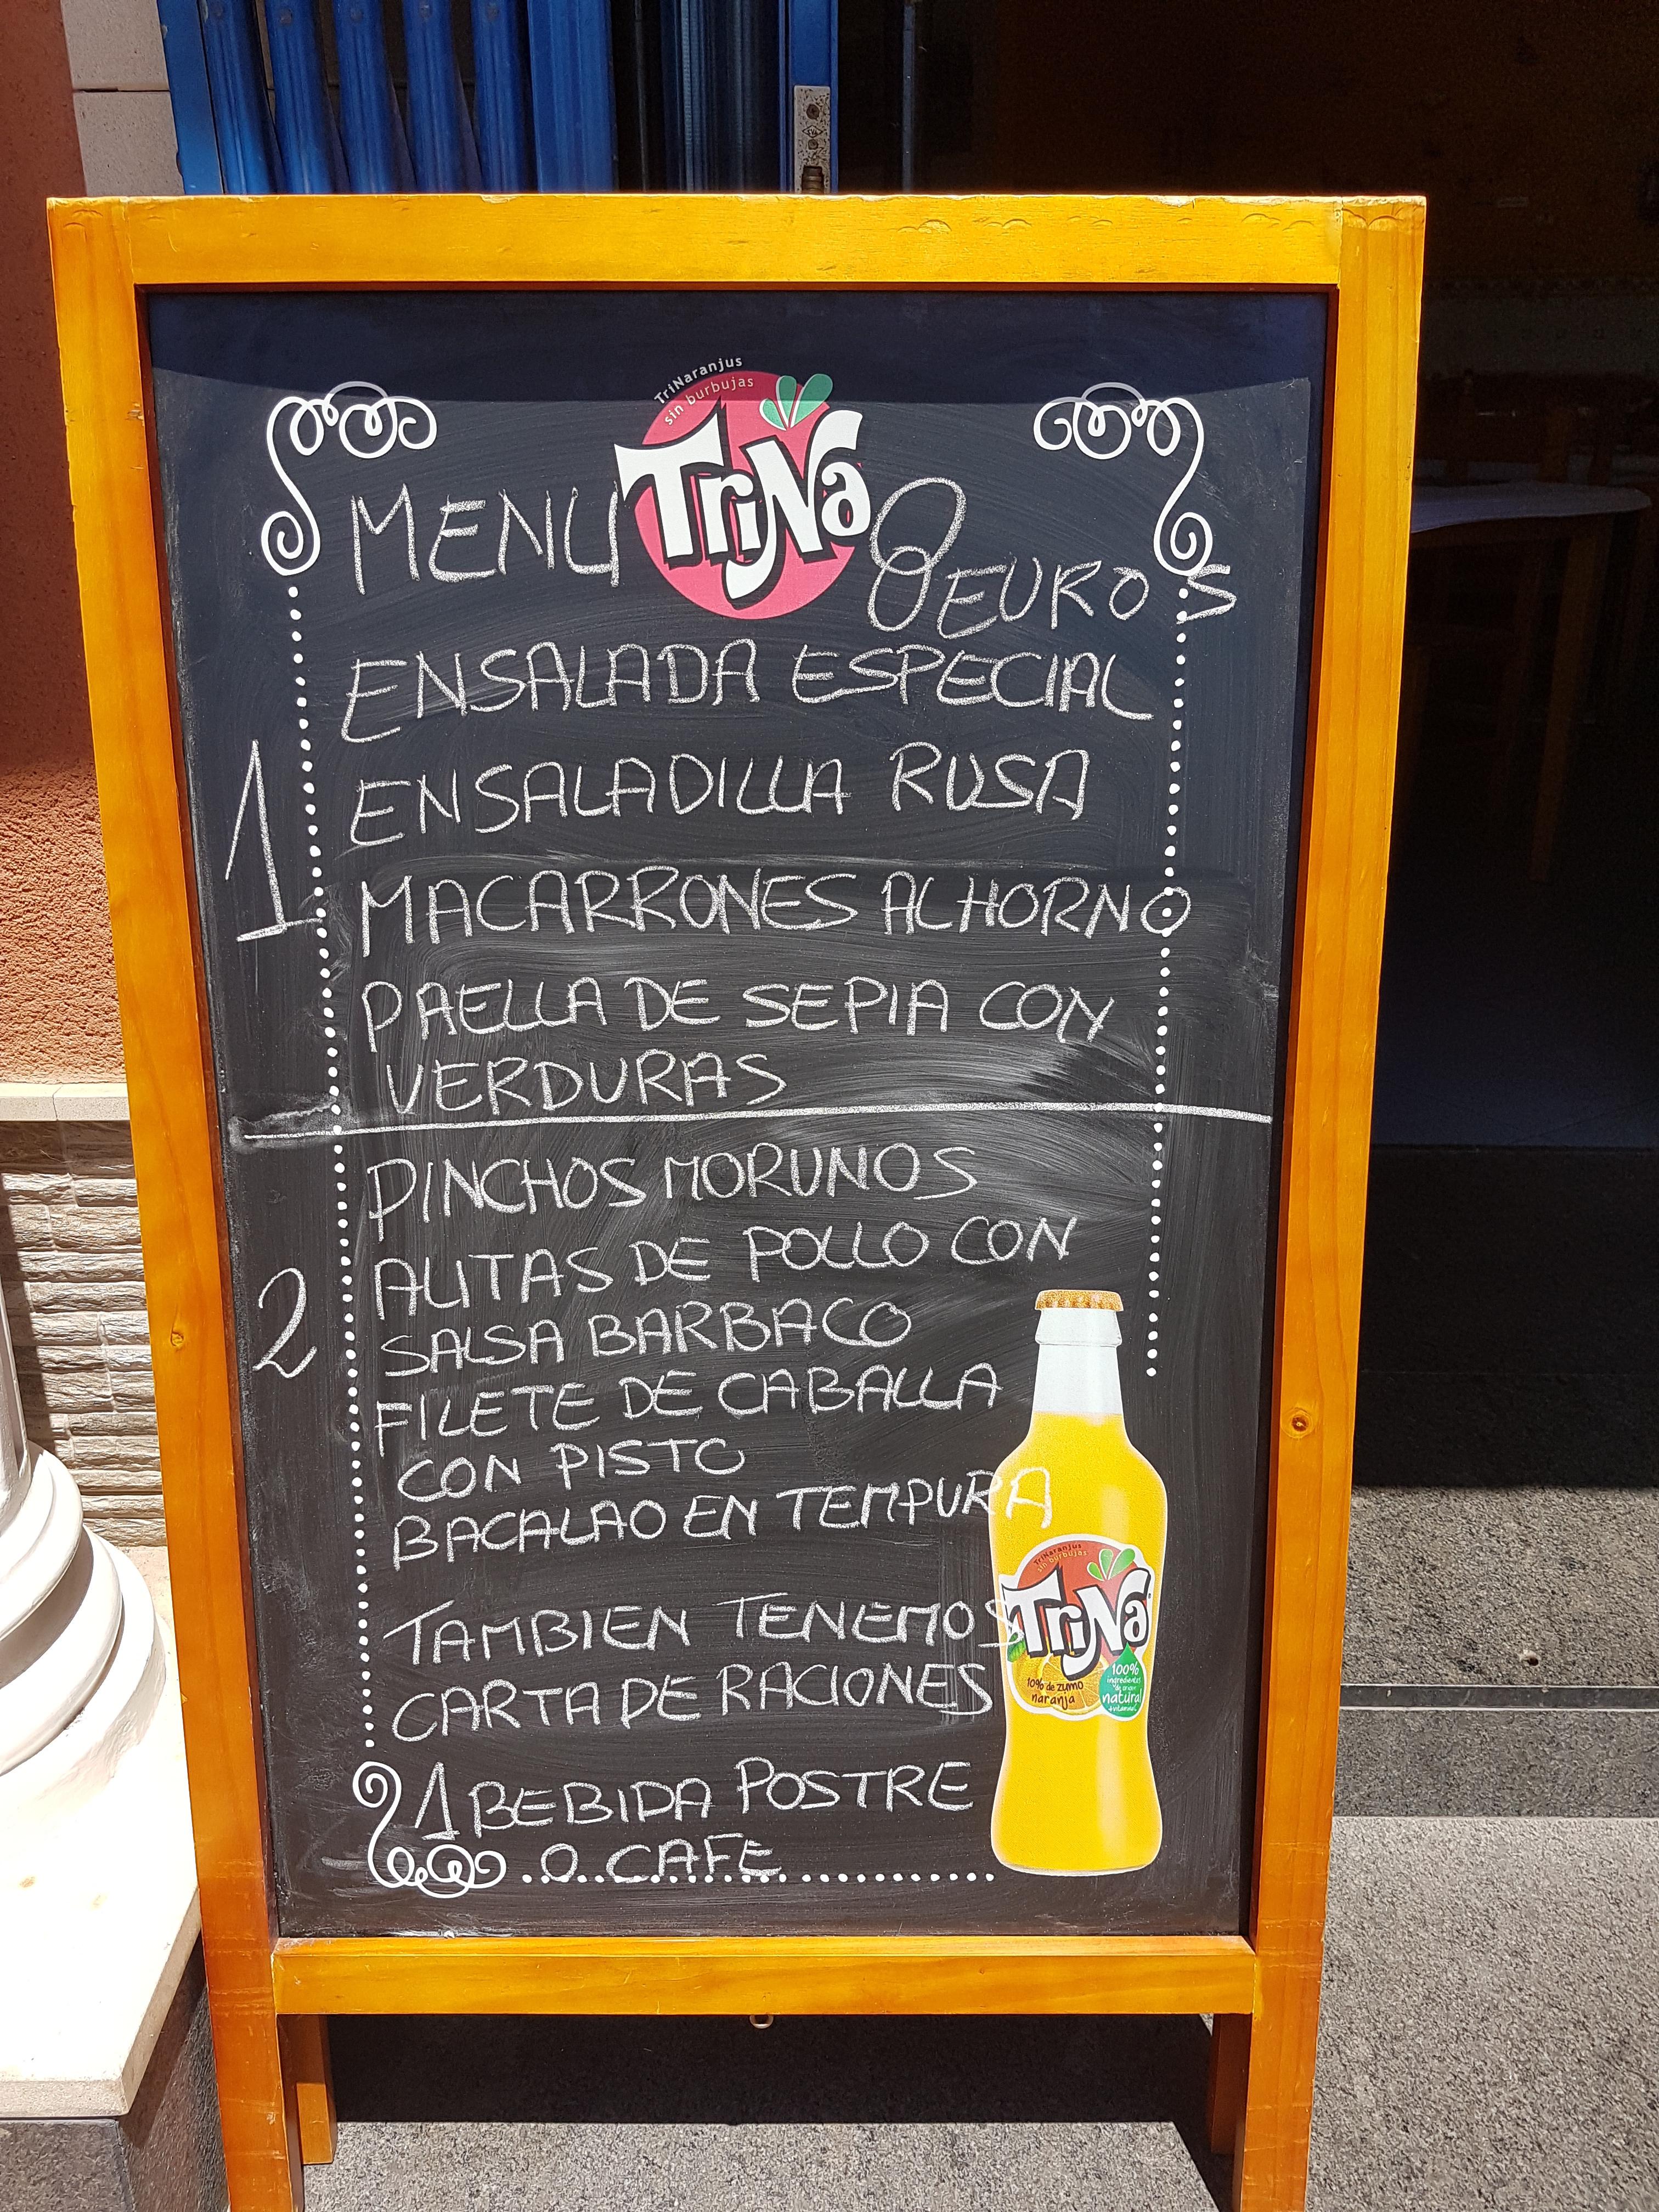 TriNaranjus
sin burbujas
TriNa
MENU 8 EUROS
ENSALADA ESPECIAL
1 ENSALADILLA RUSA
MACARRONES AL HORNO
PAELLA DE SEPIA CON
VERDURAS
PINCHOS MORUNOS
ALITAS DE POLLO CON
2 SALSA BARBACO
FILETE DE CABALLA
CON PISTO
BACALAO EN TEMPURA
TriNaranjus
sin burbujas
TriNa
10% de zumo
naranja
100%
ingredientes
de origen
natural
+vitaminas
TAMBIEN TENEMOS
CARTA DE RACIONES
1 BEBIDA POSTRE
O CAFE